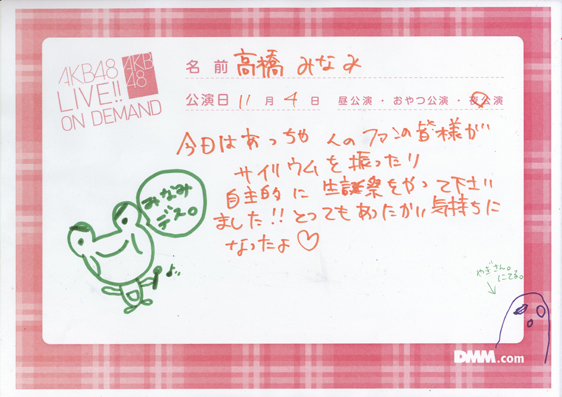 AKB48
LIVE!!
ON DEMAND
AKB
48
名前 高橋 みなみ
公演日 11 月 4 日 昼公演・おやつ公演・夜公演
今日はあっちゃ人のファンの皆様が
サイリウムを振ったり
自主的に 生誕祭をやって下さい
ました!!とってもあったかい気持ちに
なったよ♡
みなみ
デス。
よッ
やぎさん。
にてる。
DMM.com